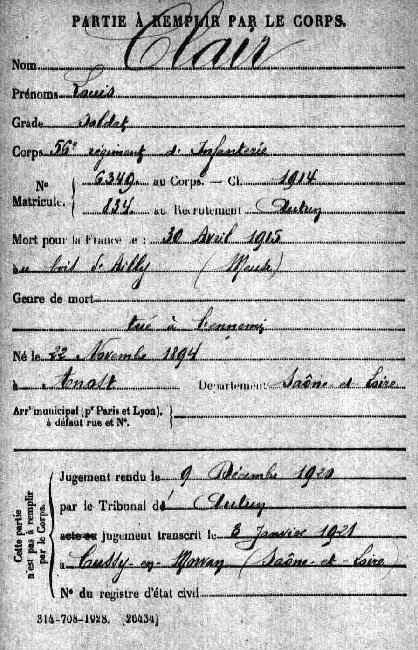 PARTIE À REMPLIR PAR LE CORPS.
Nom Clair
Prénoms Louis
Grade Soldat
Corps 56e régiment d'Infanterie
No Matricule. { 6349 au Corps. — Cl. 1914
834 au Recrutement Autun
Mort pour la France le : 30 Avril 1915
au bois d'Ailly (Meuse)
Genre de mort
tué à l'ennemi
Né le 22 Novembre 1894
à Anost Département Saône-et-Loire
Arrt municipal (pr Paris et Lyon), à défaut rue et No.
Cette partie n'est pas à remplir par le Corps.
Jugement rendu le 9 Décembre 1920
par le Tribunal de Autun
acte ou jugement transcrit le 3 Janvier 1921
à Cussy-en-Morvan (Saône-et-Loire)
No du registre d'état civil
314-708-1928. [26434]